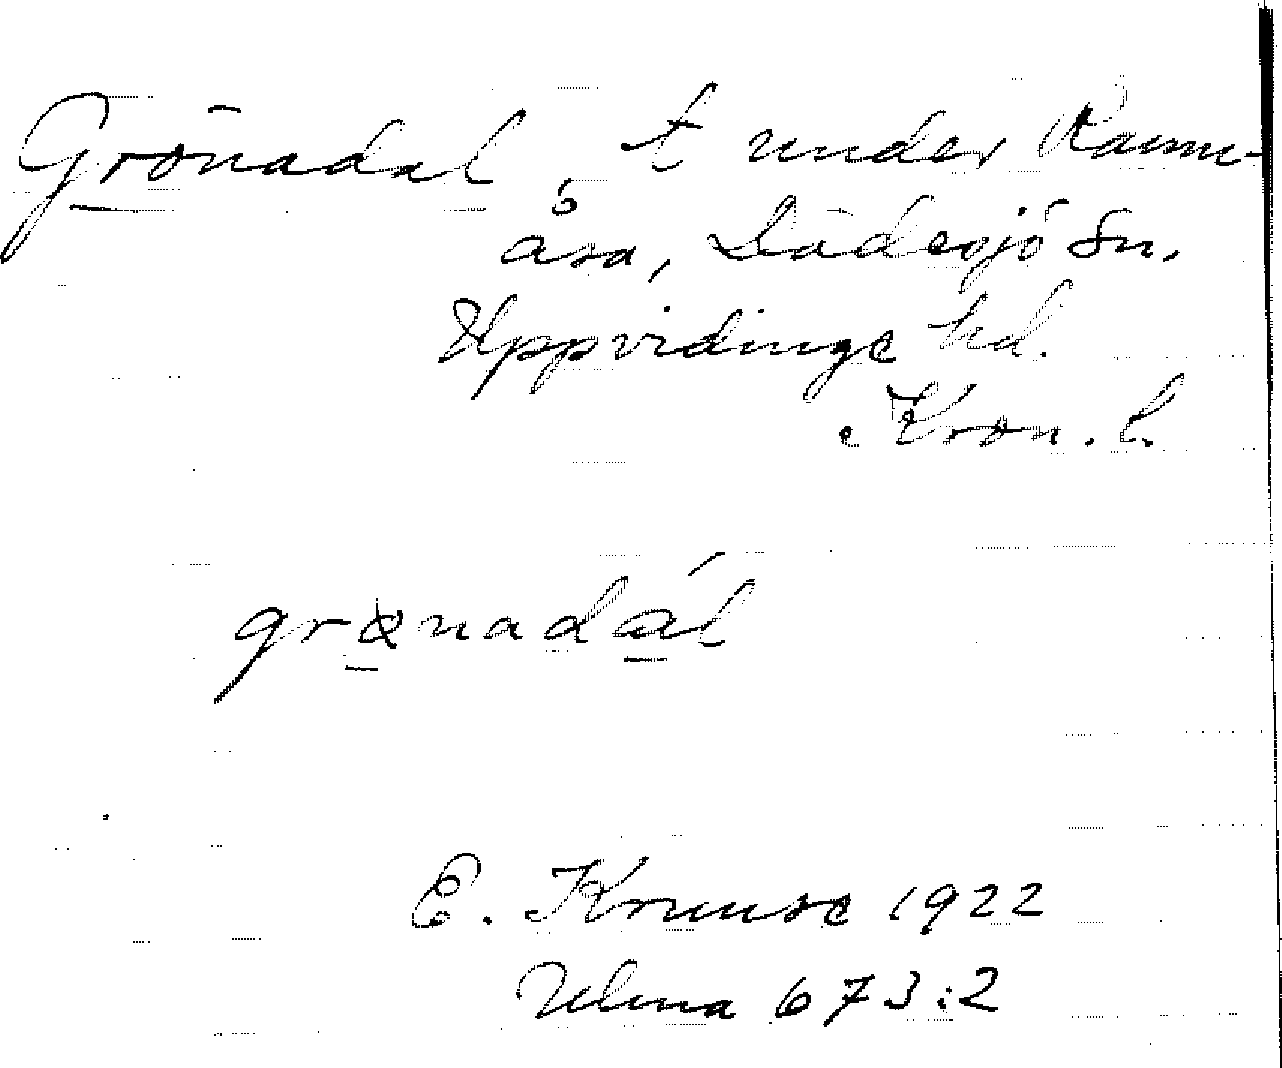 Grönadal, t under Ramn-
åsa, Dädesjö Sn.
Uppvidinge hd.
Kron. l.
grønadál
E. Kruuse 1922
Ulma 673:2